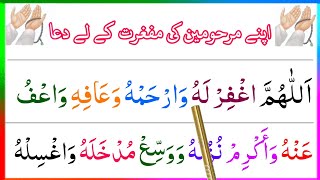 اپنے مرحومین کی مغفرت کے لے دعا
اَللّٰهُمَّ اغْفِرْ لَهُ وَارْحَمْهُ وَعَافِهِ وَاعْفُ
عَنْهُ وَأَكْرِمْ نُزُلَهُ وَوَسِّعْ مُدْخَلَهُ وَاغْسِلْهُ